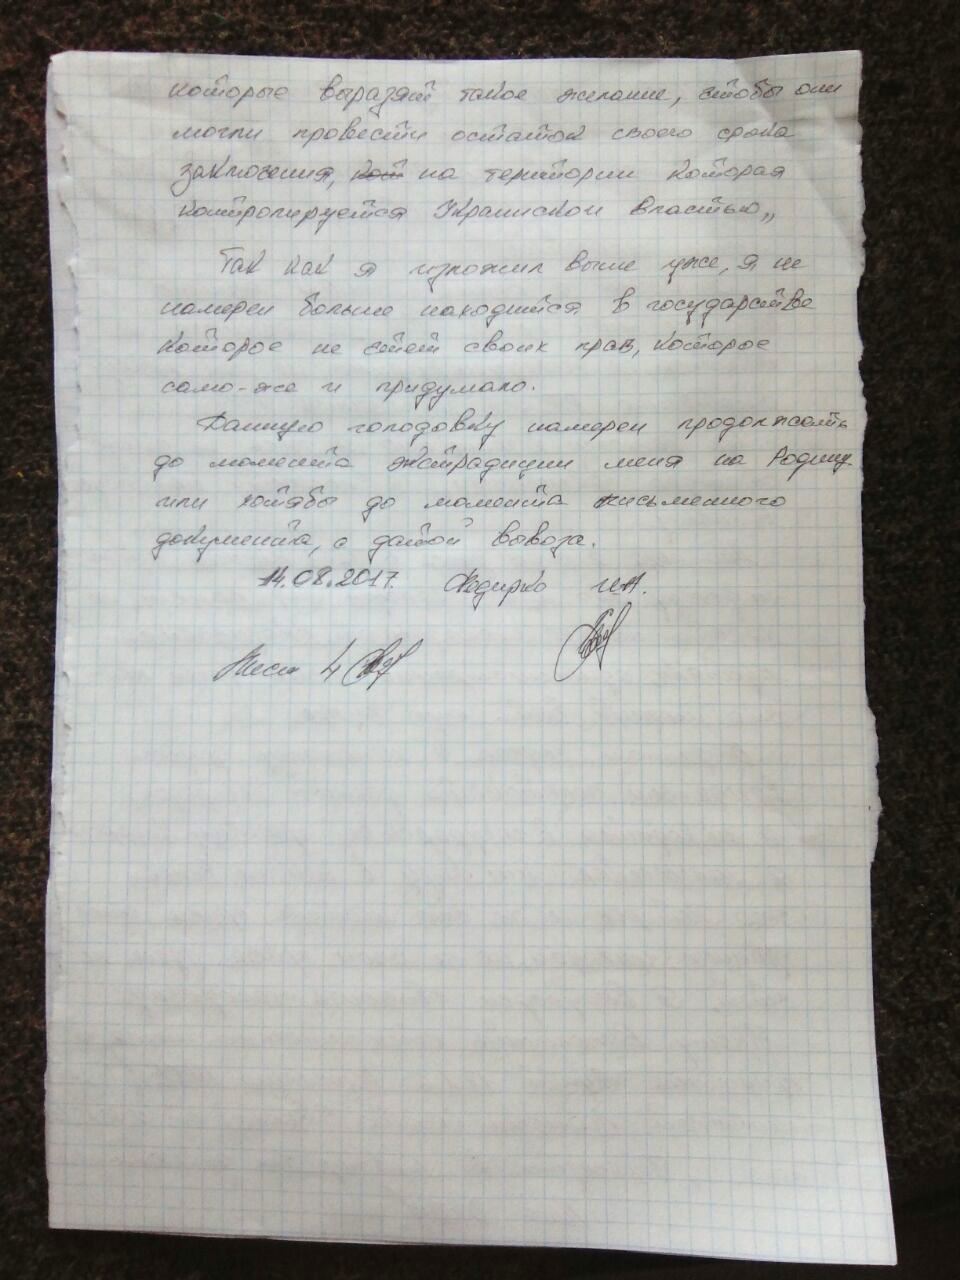 которые выразят такое желание, чтобы они
могли провести остаток своего срока
заключения, на територии которая
контролируется Украиской властью„
Так как я изложил выше уже, я не
намерен больше находится в государстве
которое не чтет своих прав, которое
само-же и придумало.
Данную голодовку намерен продолжать
до момента экстрадиции меня на Родину
или хотябы до момента письменного
документа, с датой вывоза.
14.08.2017. Федирко И.А.
Лист 4